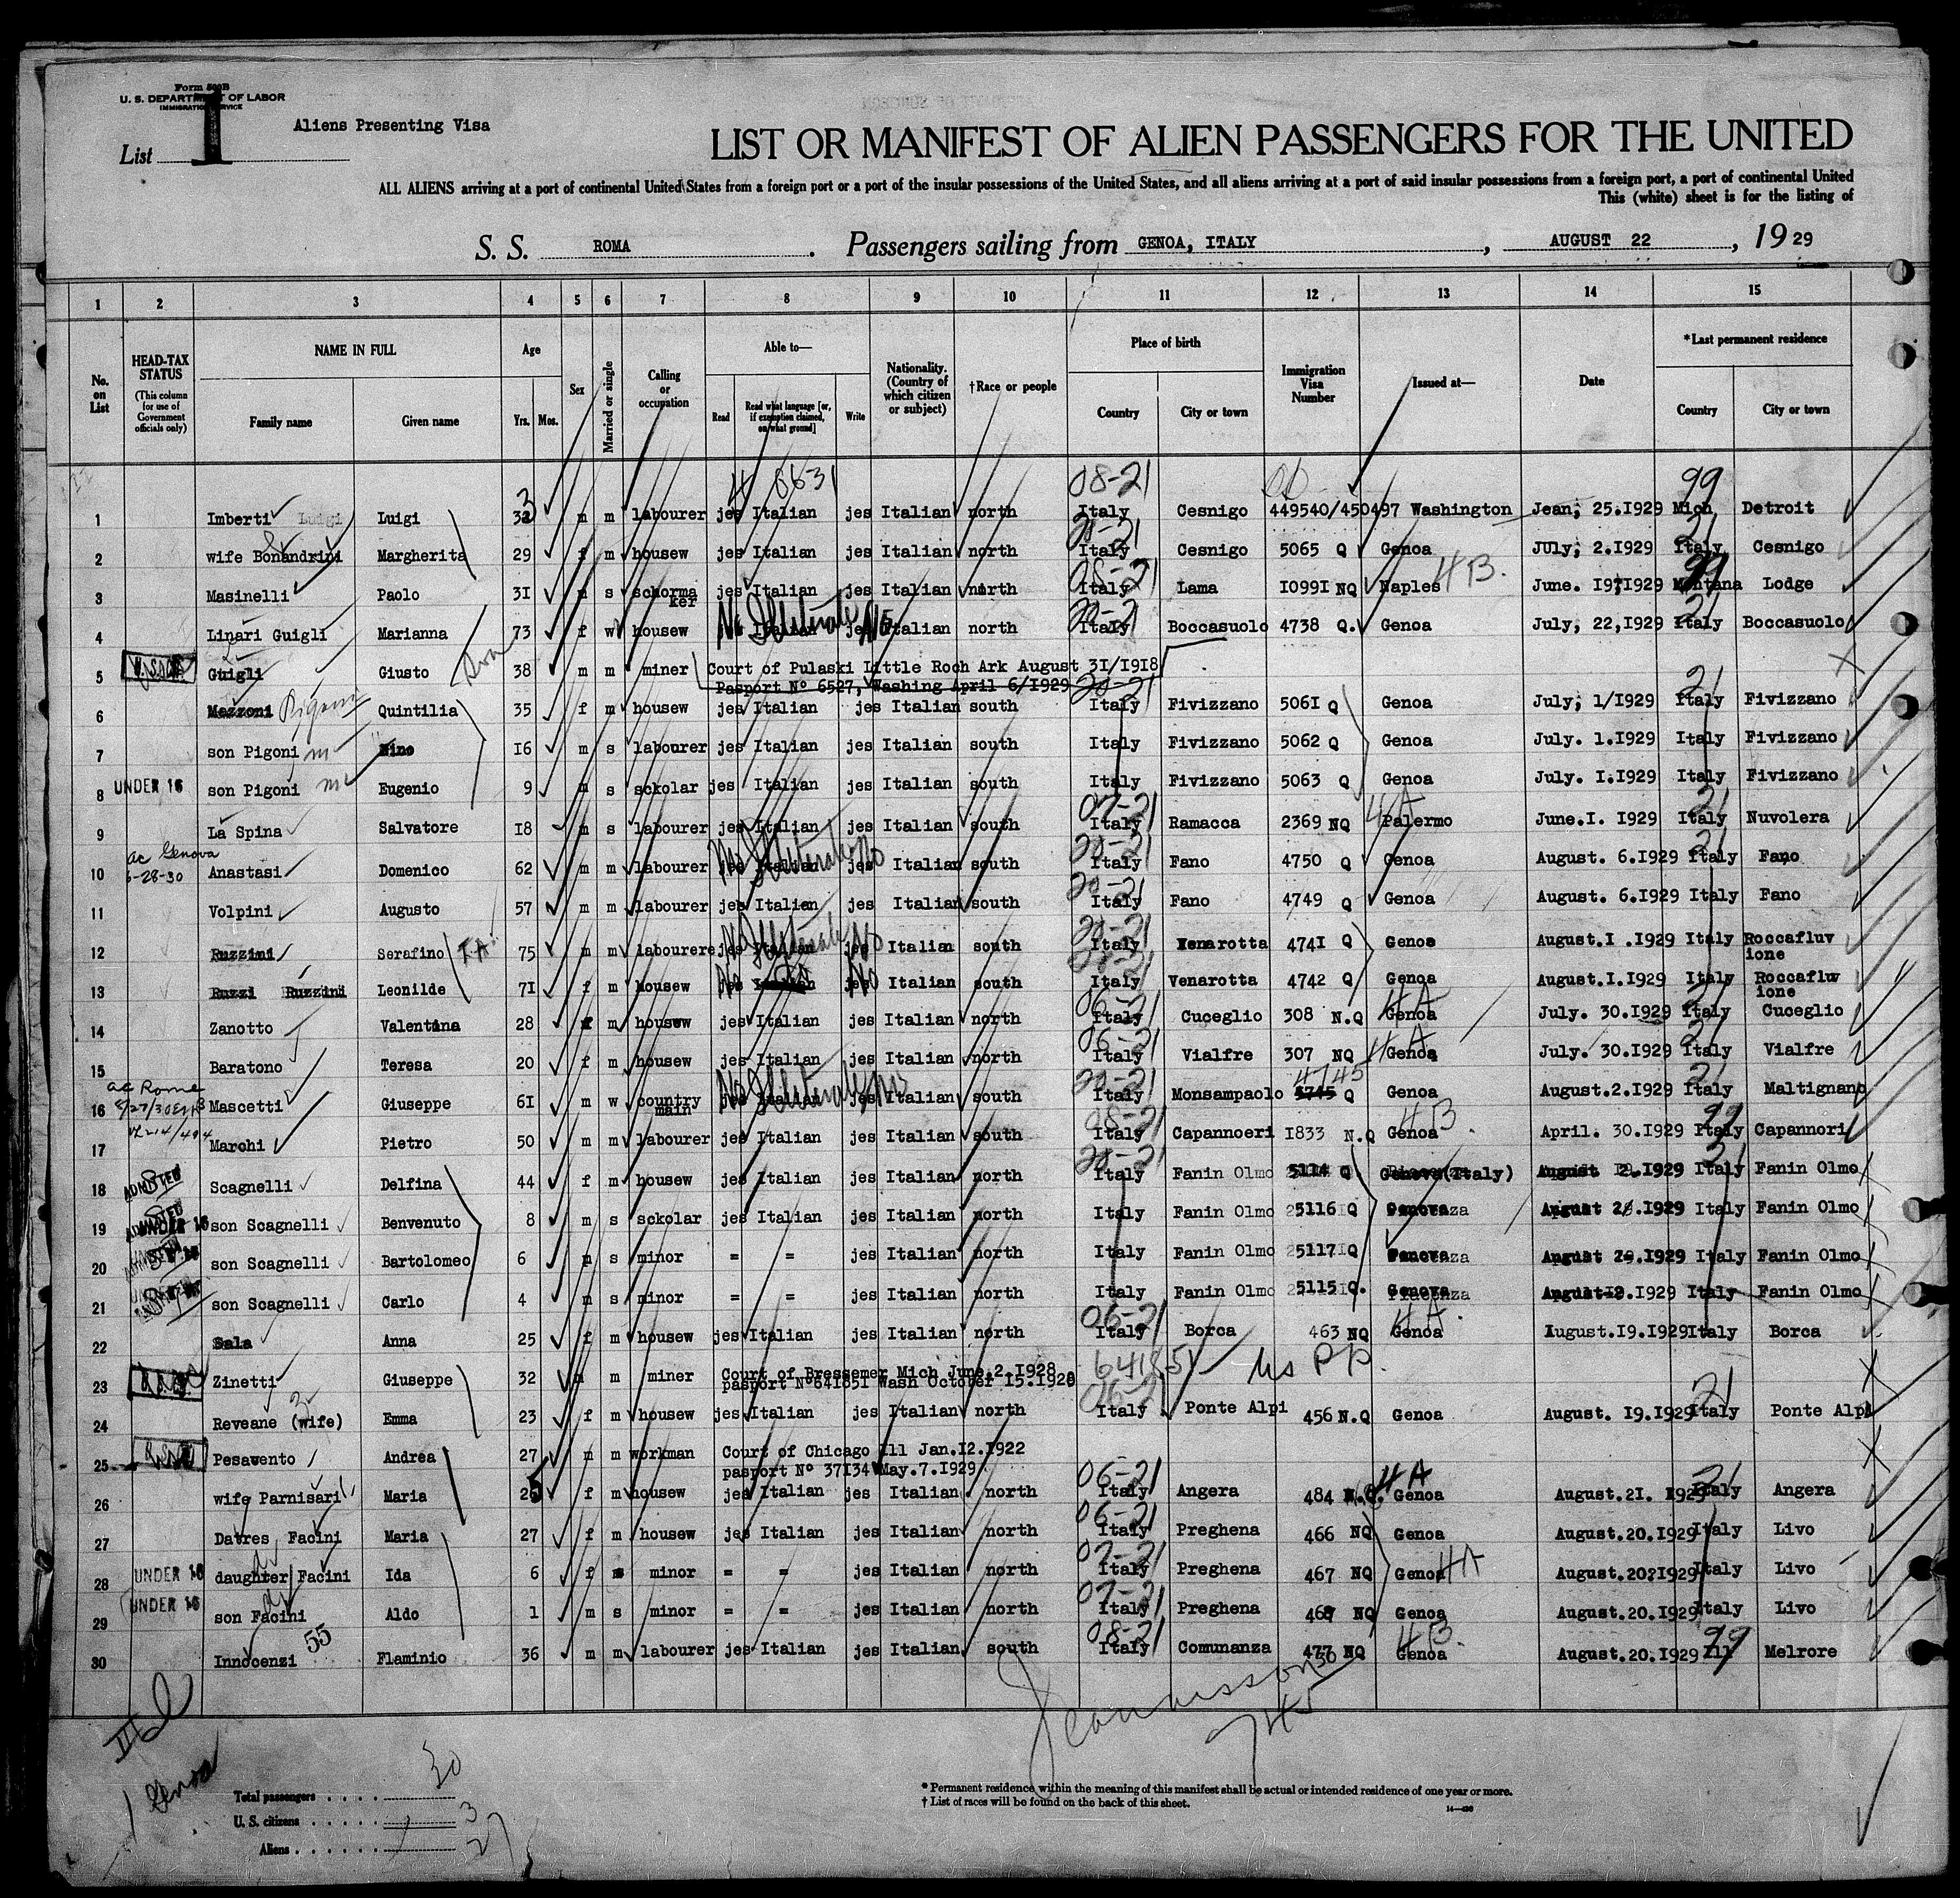 Form 500B
U. S. DEPARTMENT OF LABOR
IMMIGRATION SERVICE
Aliens Presenting Visa
List I
LIST OR MANIFEST OF ALIEN PASSENGERS FOR THE UNITED
ALL ALIENS arriving at a port of continental United States from a foreign port or a port of the insular possessions of the United States, and all aliens arriving at a port of said insular possessions from a foreign port, a port of continental United
This (white) sheet is for the listing of
S. S. ROMA. Passengers sailing from GENOA, ITALY, AUGUST 22, 1929
1 2 3 4 5 6 7 8 9 10 11 12 13 14 15
No. on List
HEAD-TAX STATUS (This column for use of Government officials only)
NAME IN FULL Family name Given name
Age Yrs. Mos.
Sex
Married or single
Calling or occupation
Able to— Read Read what language [or, if exemption claimed, on what ground] Write
Nationality. (Country of which citizen or subject)
†Race or people
Place of birth Country City or town
Immigration Visa Number
Issued at—
Date
*Last permanent residence Country City or town
4 8631 08-21 99
1 Imberti Luigi Luigi 32 3 m m labourer jes Italian jes Italian north Italy Cesnigo 449540/450497 Washington Jean; 25.I929 Mich Detroit
2 wife Bonandrini Margherita 29 f m housew jes Italian jes Italian north Italy Cesnigo 5065 Q Genoa July; 2.I929 Italy Cesnigo
3 Masinelli Paolo 3I m s schorma ker jes Italian jes Italian north 08-21 Italy Lama I099I NQ Naples 4B. June. I9;I929 99 Montana Lodge
4 Linari Guigli Marianna 73 f w housew jes Italian jes No Illiterate No Italian north Italy Boccasuolo 4738 Q. Genoa July, 22,I929 Italy Boccasuolo
5 Guigli Giusto 38 m m miner Court of Pulaski Little Roch Ark August 3I/I9I8
Pasport Nº 6527, Washing April 6/I929
6 Mezzoni Pigoni Quintilia 35 f m housew jes Italian jes Italian south Italy Fivizzano 506I Q Genoa July; 1/I929 Italy Fivizzano
7 son Pigoni Nino I6 m s labourer jes Italian jes Italian south Italy Fivizzano 5062 Q Genoa July. 1.I929 Italy Fivizzano
8 UNDER 16 son Pigoni Eugenio 9 m s sckolar jes Italian jes Italian south Italy Fivizzano 5063 Q Genoa July. I.I929 Italy Fivizzano
9 La Spina Salvatore I8 m s labourer jes Italian jes Italian south 07-21 Italy Ramacca 2369 NQ 4A Palermo June.I. I929 21 Italy Nuvolera
10 ac Genova 6-28-30 Anastasi Domenico 62 m m labourer jes Italian jes No Illiterate no Italian south Italy Fano 4750 Q Genoa August. 6.I929 Italy Fano
11 Volpini Augusto 57 m m labourer jes Italian jes Italian south Italy Fano 4749 Q Genoa August. 6.I929 Italy Fano
12 Ruzzini Serafino 75 m m labourere jes Italian jes No Illiterate No Italian south Italy Venarotta 474I Q Genoa August.I .I929 Italy Roccafluv ione
13 Ruzzi Ruzzini Leonilde 7I f m housew jes Italian jes No No Italian south Italy Venarotta 4742 Q Genoa August.I.I929 Italy Roccafluv ione
14 Zanotto Valentina 28 f m housew jes Italian jes Italian north 06-21 Italy Cuceglio 308 N.Q 4A Genoa July. 30.I929 Italy Cuceglio
15 Baratono Teresa 20 f m housew jes Italian jes Italian north 06-21 Italy Vialfre 307 NQ 4A Genoa July. 30.I929 Italy Vialfre
16 ac Rome Mascetti Giuseppe 6I m w country main jes Italian jes No Illiterate no Italian south Italy Monsampaolo 4745 Q Genoa August.2.I929 Italy Maltignano
17 Marchi Pietro 50 m m labourer jes Italian jes Italian south 08-21 Italy Capannoeri I833 N.Q 4B. Genoa April. 30.I929 99 Italy Capannori
18 ADMITTED Scagnelli Delfina 44 f m housew jes Italian jes Italian north Italy Fanin Olmo 5114 Q Genova(Italy) August 2.I929 Italy Fanin Olmo
19 ADMITTED UNDER 16 son Scagnelli Benvenuto 8 m s sckolar jes Italian jes Italian north Italy Fanin Olmo 5116 Q Genova August 2.I929 Italy Fanin Olmo
20 son Scagnelli Bartolomeo 6 m s minor = = jes Italian north Italy Fanin Olmo 5117 Q Genova August 2.I929 Italy Fanin Olmo
21 son Scagnelli Carlo 4 m s minor = = jes Italian north Italy Fanin Olmo 5115 Q. Genova August 2.I929 Italy Fanin Olmo
22 Sala Anna 25 f m housew jes Italian jes Italian north 06-21 Italy Borca 463 NQ 4A. Genoa August.I9.I929 Italy Borca
23 Zinetti Giuseppe 32 m m miner Court of Bressemer Mich June.2.I928 641851 US PP.
pasport Nº641851 Wash October I5.I928
24 Reveane (wife) Emma 23 f m housew jes Italian jes Italian north 06-21 Italy Ponte Alpi 456 N.Q Genoa August. I9.I929 21 Italy Ponte Alpi
25 Pesavento Andrea 27 m m workman Court of Chicago Ill Jan.I2.I922
pasport Nº 37I34 May.7.I929
26 wife Parnisari Maria 25 f m housew jes Italian jes Italian north 06-21 Italy Angera 484 N.Q. 4A Genoa August.2I. I929 21 Italy Angera
27 Datres Facini Maria 27 f m housew jes Italian jes Italian north 06-21 Italy Preghena 466 NQ Genoa August.20.I929 Italy Livo
28 UNDER 16 daughter Facini Ida 6 f s minor = = jes Italian north 07-21 Italy Preghena 467 NQ Genoa 4A August.20.I929 Italy Livo
29 UNDER 16 son Facini Aldo 1 m s minor = = jes Italian north 07-21 Italy Preghena 468 NQ Genoa August.20.I929 Italy Livo
30 Innocenzi 55 Flaminio 36 m m labourer jes Italian jes Italian south 08-21 Italy Comunanza 477 NQ 4B. Genoa August.20.I929 99 Ill Melrore
Genoa
Total passengers . . . . 30
U. S. citizens . . . . . 3
Aliens . . . . . . 27
* Permanent residence within the meaning of this manifest shall be actual or intended residence of one year or more.
† List of races will be found on the back of this sheet.